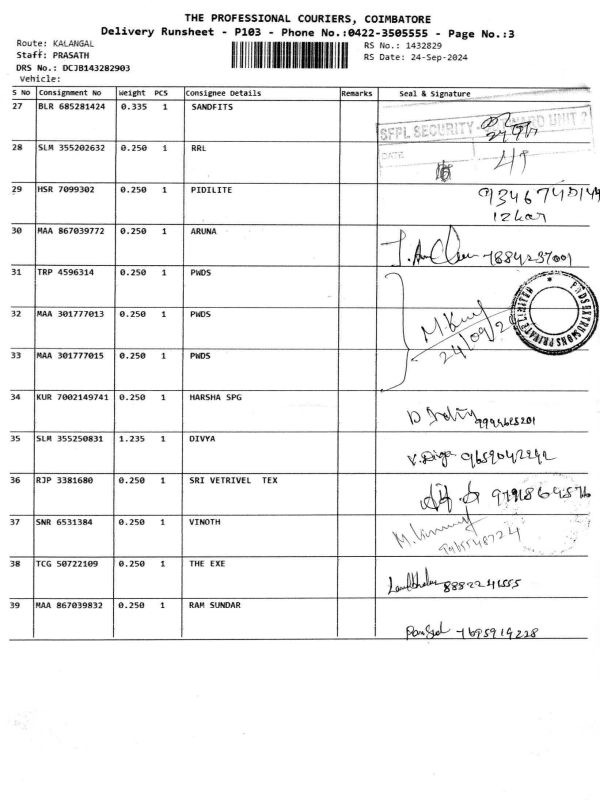 THE PROFESSIONAL COURIERS, COIMBATORE
Delivery Runsheet - P103 - Phone No.:0422-3505555 - Page No.:3
Route: KALANGAL RS No.: 1432829
Staff: PRASATH RS Date: 24-Sep-2024
DRS No.: DCJB143282903
Vehicle:
S No Consignment No Weight PCS Consignee Details Remarks Seal & Signature
27 BLR 685281424 0.335 1 SANDFITS
SFPL SECURITY UNIT 2
DATE
28 SLM 355202632 0.250 1 RRL
29 HSR 7099302 0.250 1 PIDILITE
Izhar
30 MAA 867039772 0.250 1 ARUNA 7884237001
31 TRP 4596314 0.250 1 PWDS
32 MAA 301777013 0.250 1 PWDS
24/09/24
PWDS EXTRUSIONS PRIVATE LIMITED
33 MAA 301777015 0.250 1 PWDS
34 KUR 7002149741 0.250 1 HARSHA SPG
35 SLM 355250831 1.235 1 DIVYA
V. Divya 9659042292
36 RJP 3381680 0.250 1 SRI VETRIVEL TEX
9791864576
37 SNR 6531384 0.250 1 VINOTH
9965548724
38 TCG 50722109 0.250 1 THE EXE
8882241555
39 MAA 867039832 0.250 1 RAM SUNDAR
7695919228